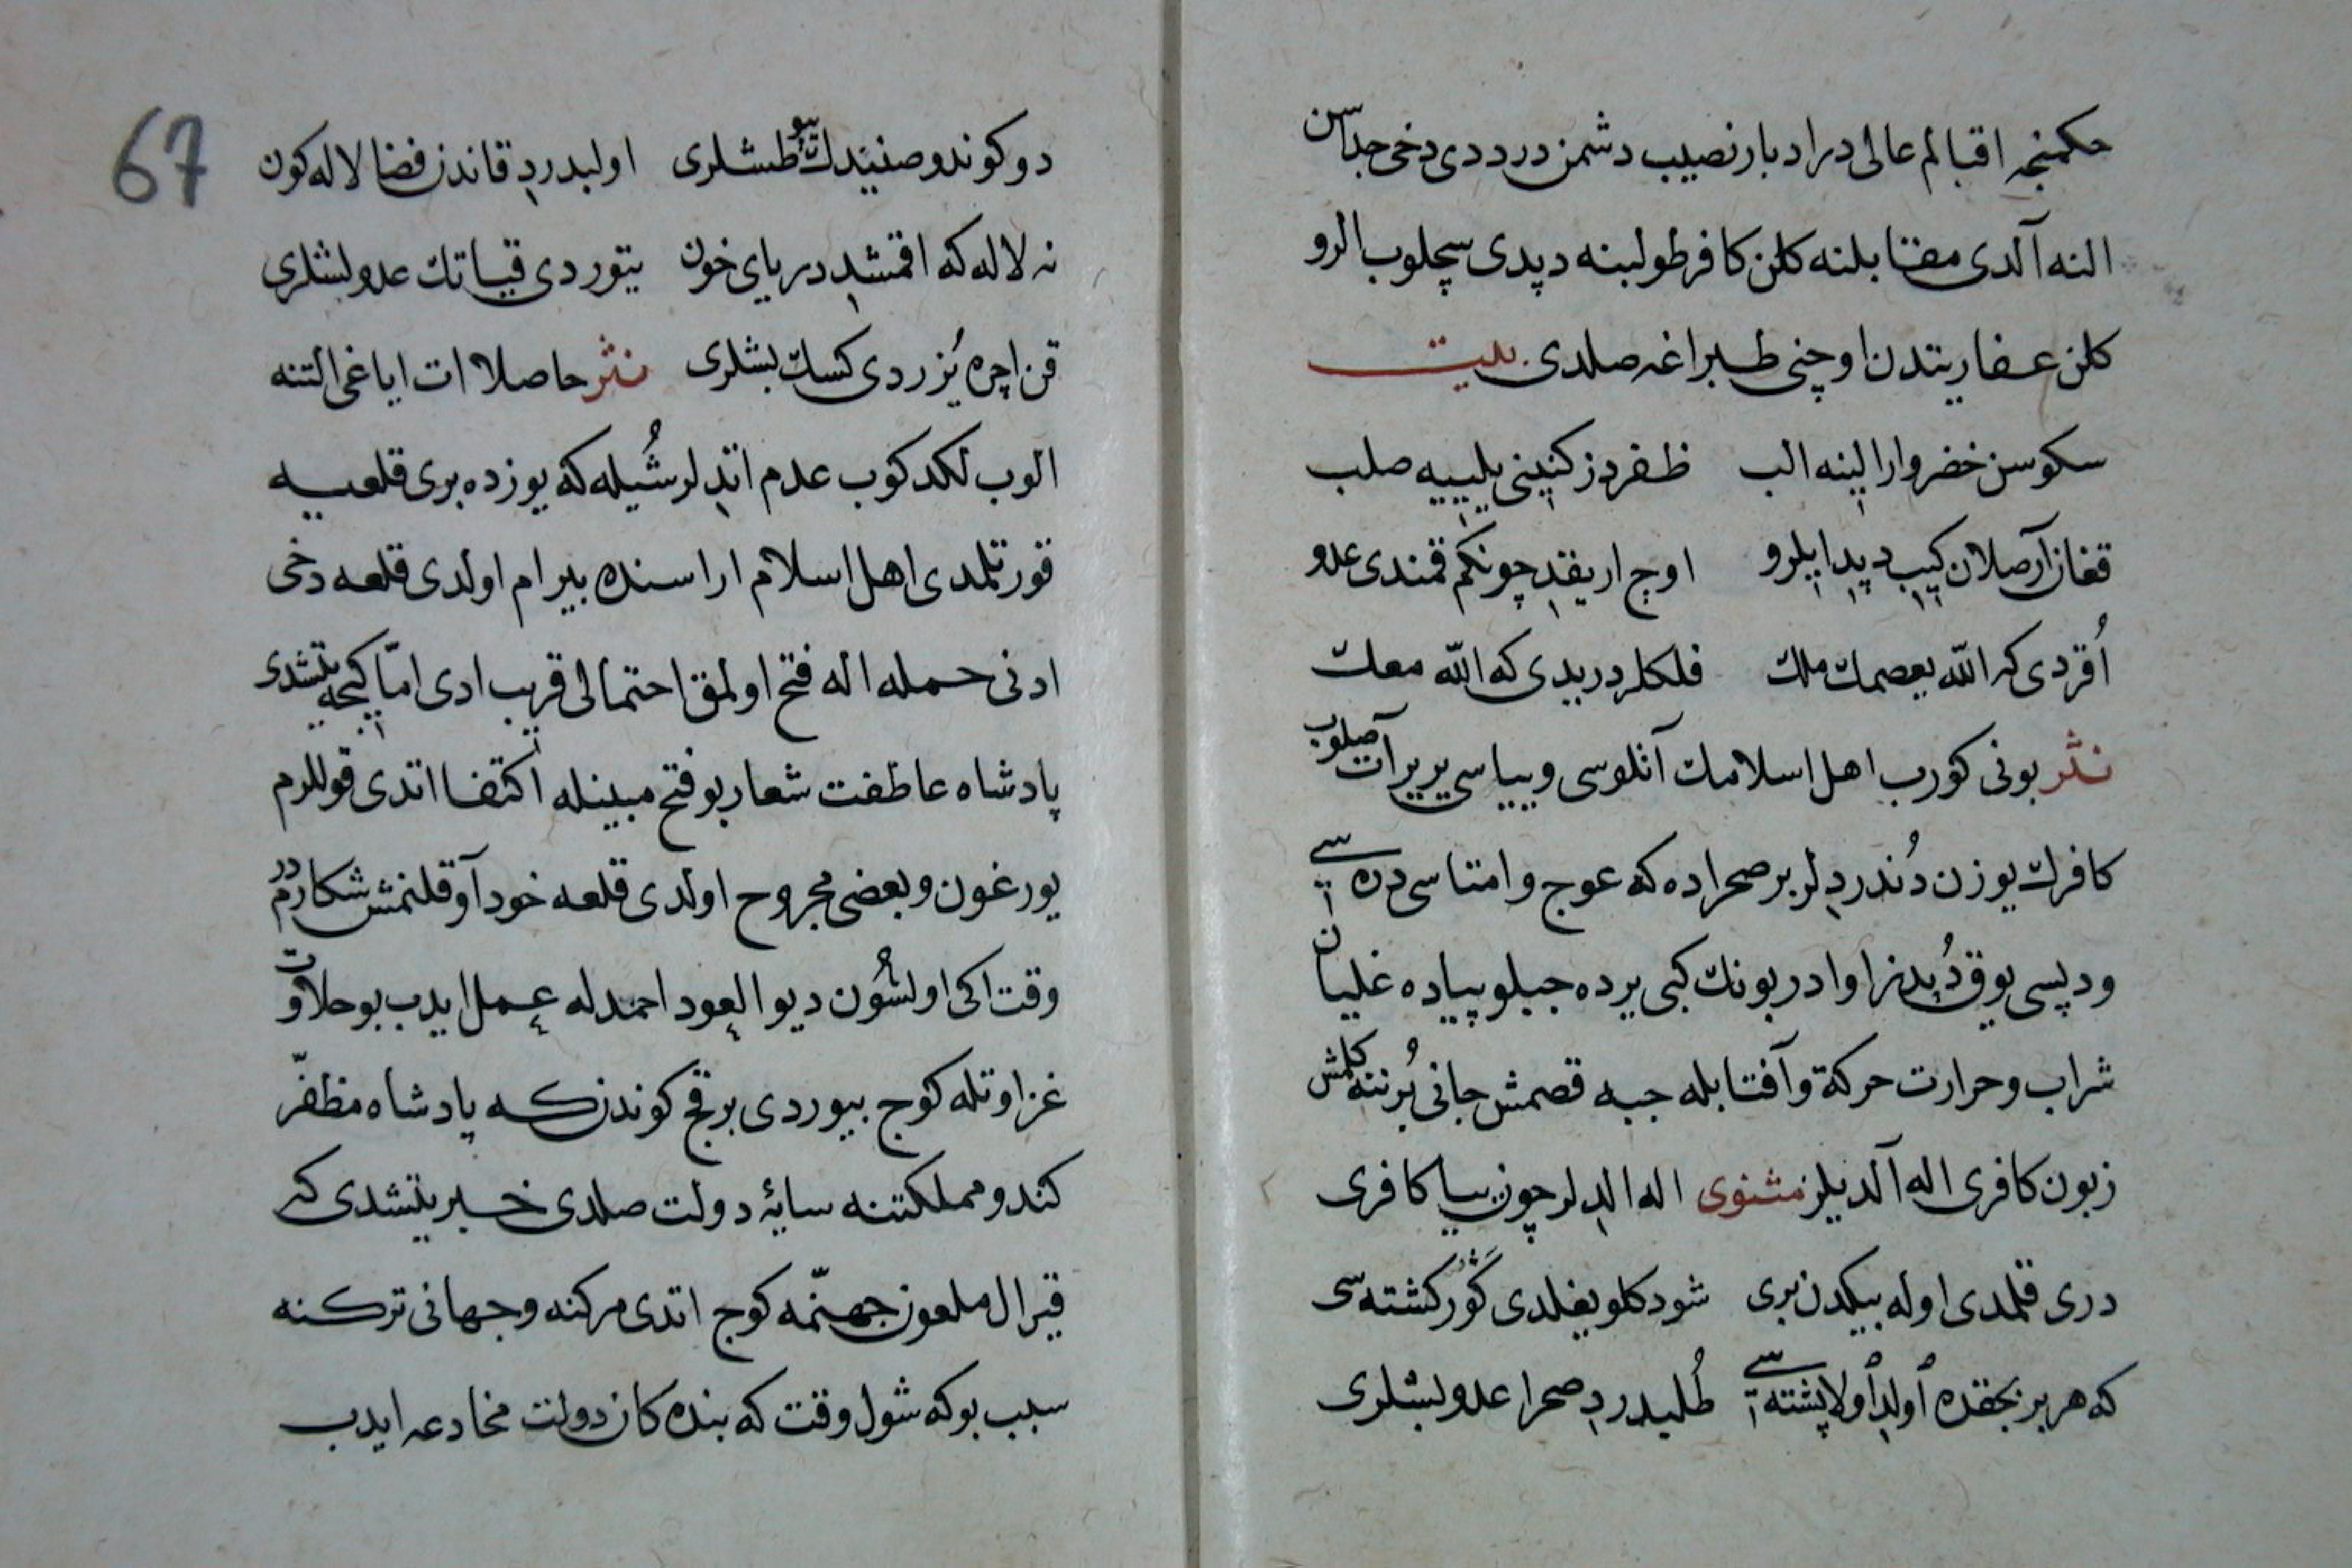 حكمنجه اقبالم عالی در ادبار نصیب دشمن در ددی دخی جداسن
النه آلدی مقنا بلنه كلن كافر طولبنه دپدی سچلوب الرو
كلن عفاریتدن اوچنی طبراغه صلدی بیت
سكوسن خضروار الینه الب ظفر دز كنینی یلییه صلب
قغان آرصلان كیبی دپدا یلرو اوج اریقدچونكم قمندی عدو
اُقردی كه الله یعصمك ملك فلكلر دریدی كه الله معك
نثر بونی كورب اهل اسلامك آتلوسی و یپاسی یریرآت صلوب
كافرك یوزن دُندردلر بر صحراده كه عوج و امتاسی دره سی
ودپسی یوق دُپدز اوادر بونك كبی یرده جبلو پیاده غلیان
شراب و حرارت حركة و آفتابله جبه قصمش جانی بُرننه كلمش
زبون كافری اله آلدیلر مثنوی اله الدلر چون سیا كافری
دری قلمدی اوله بیكدن بری شودكلو یغلدی كَور كشته سی
كه هر بر بجقده اُولد اُولا پشته سی طُلیدرد صحرا عدو لبشلری
67
دوكوندو صنیندك طشلری اولبدرد قاندن فضا لاله كون
نه لاله كه اقمشد دریای خون یتوردی قیاتك عدو لبشلری
قن اچره یُزردی كسك بشلری نثر حاصلا ات ایاغی التنه
الوب لكدكوب عدم اتدلر شُیله كه یوزده بری قلعیه
قورتلمدی اهل اسلام اراسنده بیرام اولدی قلعه دخی
ادنی حمله اله فتح اولمق احتمالی قریب ادی امّا كیجه یتشدی
پادشاه عاطفت شعار بو فتح مبینله اكتفا اتدی قوللرم
یورغون و بعضی مجروح اولدی قلعه خود آوقلنمش شكارمدر
وقت اكی اولشُون دیو العود احمدله عمل ایدب بو حلاوت
غزاوتله كوج بیوردی برقچ كوندنكه پادشاه مظفّر
كندو مملكتنه سایهٔ دولت صلدی خبر یتشدی كه
قیرال ملعون جهنّمه كوج اتدی مركنه و جهانی تركنه
سبب بوكه شول وقت كه بنده كان دولت مخادعه ایدب